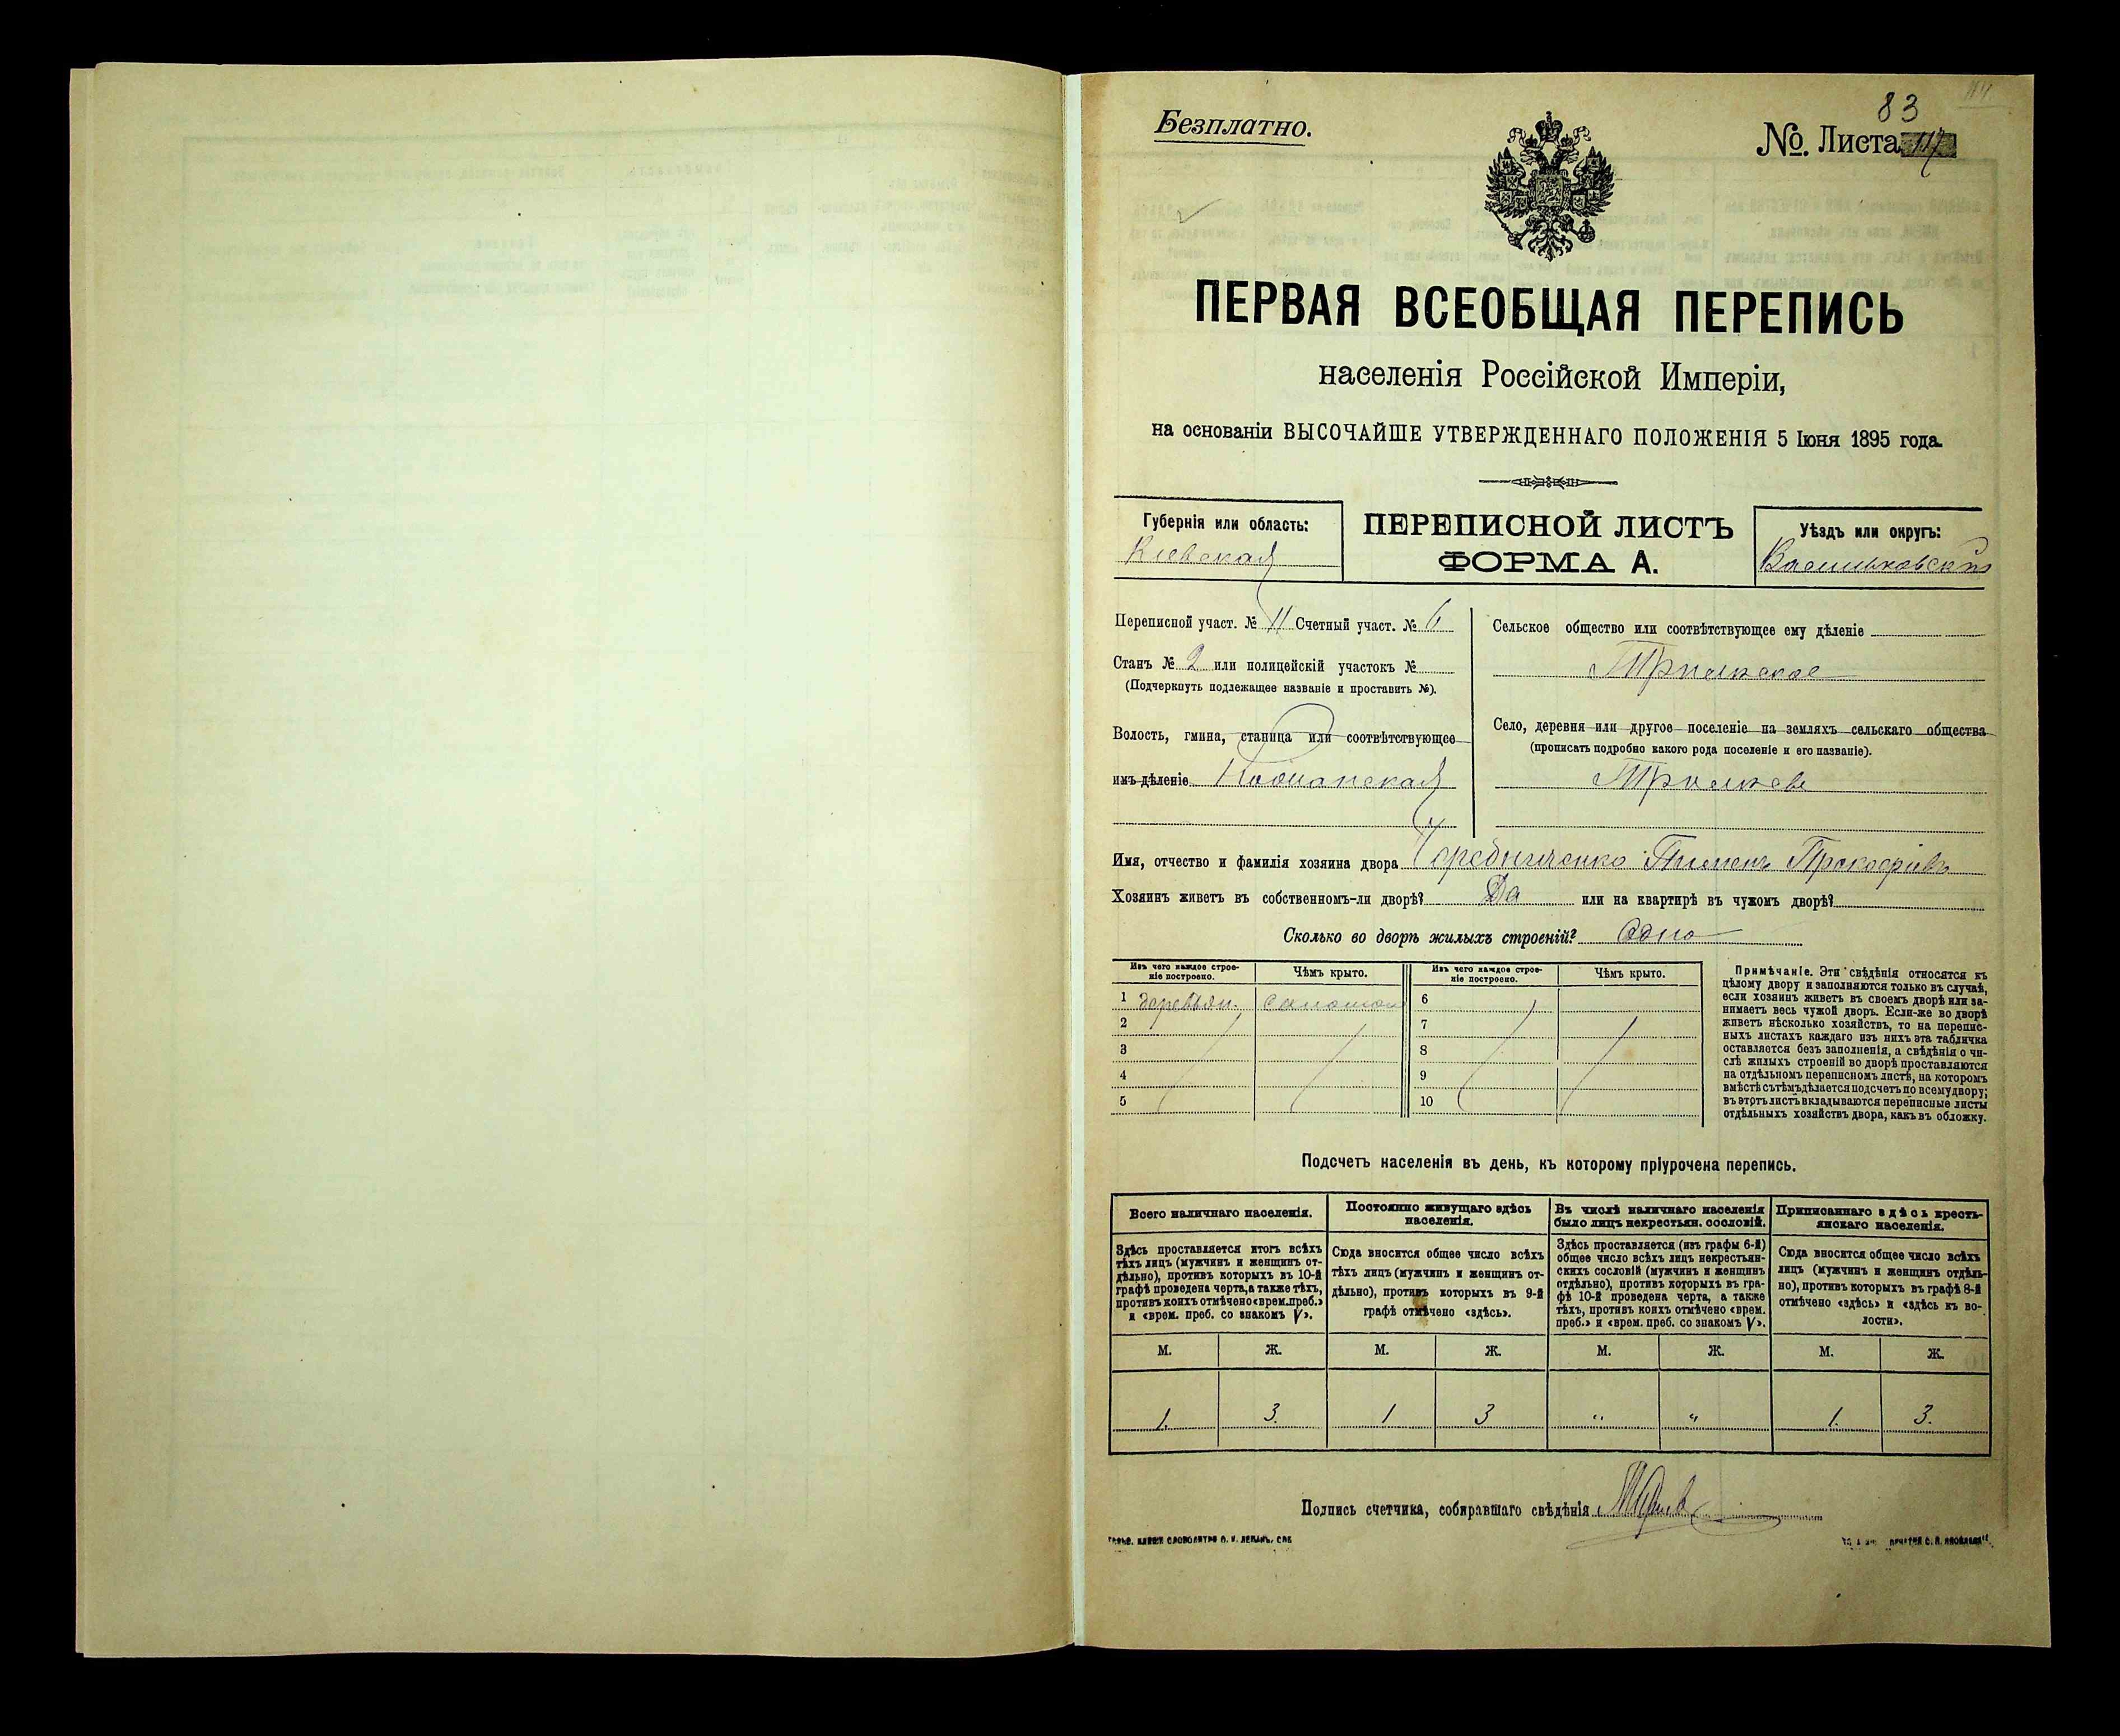 Безплатно.
83
№. Листа 117
ПЕРВАЯ ВСЕОБЩАЯ ПЕРЕПИСЬ
населенія Россійской Имперіи,
на основаніи ВЫСОЧАЙШЕ УТВЕРЖДЕННАГО ПОЛОЖЕНІЯ 5 Іюня 1895 года.
Губернія или область:
Кіевская
ПЕРЕПИСНОЙ ЛИСТЪ
ФОРМА А.
Уѣздъ или округъ:
Васильковскій
Переписной участ. № 11 Счетный участ. № 6
Станъ № 2 или полицейскій участокъ №
(Подчеркнуть подлежащее названіе и проставить №).
Волость, гмина, станица или соотвѣтствующее
имъ дѣленіе
Сельское общество или соотвѣтствующее ему дѣленіе
Село, деревня или другое поселеніе на земляхъ сельскаго общества
(прописать подробно какого рода поселеніе и его названіе).
Имя, отчество и фамилія хозяина двора Чередниченко Пимен Прокофіевъ
Хозяинъ живетъ въ собственномъ-ли дворѣ? Да или на квартирѣ въ чужомъ дворѣ?
Сколько во дворѣ жилыхъ строеній? Одно
Изъ чего каждое строе-
ніе построено.
Чѣмъ крыто.
Изъ чего каждое строе-
ніе построено.
Чѣмъ крыто.
1 деревян. соломою 6
2 7
3 8
4 9
5 10
Примѣчаніе. Эти свѣдѣнія относятся къ
цѣлому двору и заполняются только въ случаѣ,
если хозяинъ живетъ въ своемъ дворѣ или за-
нимаетъ весь чужой дворъ. Если-же во дворѣ
живетъ нѣсколько хозяйствъ, то на перепис-
ныхъ листахъ каждаго изъ нихъ эта табличка
оставляется безъ заполненія, а свѣдѣнія о чи-
слѣ жилыхъ строеній во дворѣ проставляются
на отдѣльномъ переписномъ листѣ, на которомъ
вмѣстѣ съ тѣмъ дѣлается подсчетъ по всему двору;
въ этотъ листъ вкладываются переписные листы
отдѣльныхъ хозяйствъ двора, какъ въ обложку.
Подсчетъ населенія въ день, къ которому пріурочена перепись.
Всего наличнаго населенія.
Постоянно живущаго здѣсь
населенія.
Въ числѣ наличнаго населенія
было лицъ некрестьян. сословій.
Приписаннаго здѣсь кресть-
янскаго населенія.
Здѣсь проставляется итогъ всѣхъ
тѣхъ лицъ (мужчинъ и женщинъ от-
дѣльно), противъ которыхъ въ 10-й
графѣ проведена черта, а также тѣхъ,
противъ коихъ отмѣчено «врем. преб.»
и «врем. преб. со знакомъ V».
Сюда вносится общее число всѣхъ
тѣхъ лицъ (мужчинъ и женщинъ от-
дѣльно), противъ которыхъ въ 9-й
графѣ отмѣчено «здѣсь».
Здѣсь проставляется (изъ графы 6-й)
общее число всѣхъ лицъ некрестьян-
скихъ сословій (мужчинъ и женщинъ
отдѣльно), противъ которыхъ въ гра-
фѣ 10-й проведена черта, а также
тѣхъ, противъ коихъ отмѣчено «врем.
преб.» и «врем. преб. со знакомъ V».
Сюда вносится общее число всѣхъ
лицъ (мужчинъ и женщинъ отдѣль-
но), противъ которыхъ въ графѣ 8-й
отмѣчено «здѣсь» и «здѣсь къ во-
лости».
М. Ж. М. Ж. М. Ж. М. Ж.
1. 3. 1 3 " " 1. 3.
Подпись счетчика, собиравшаго свѣдѣнія